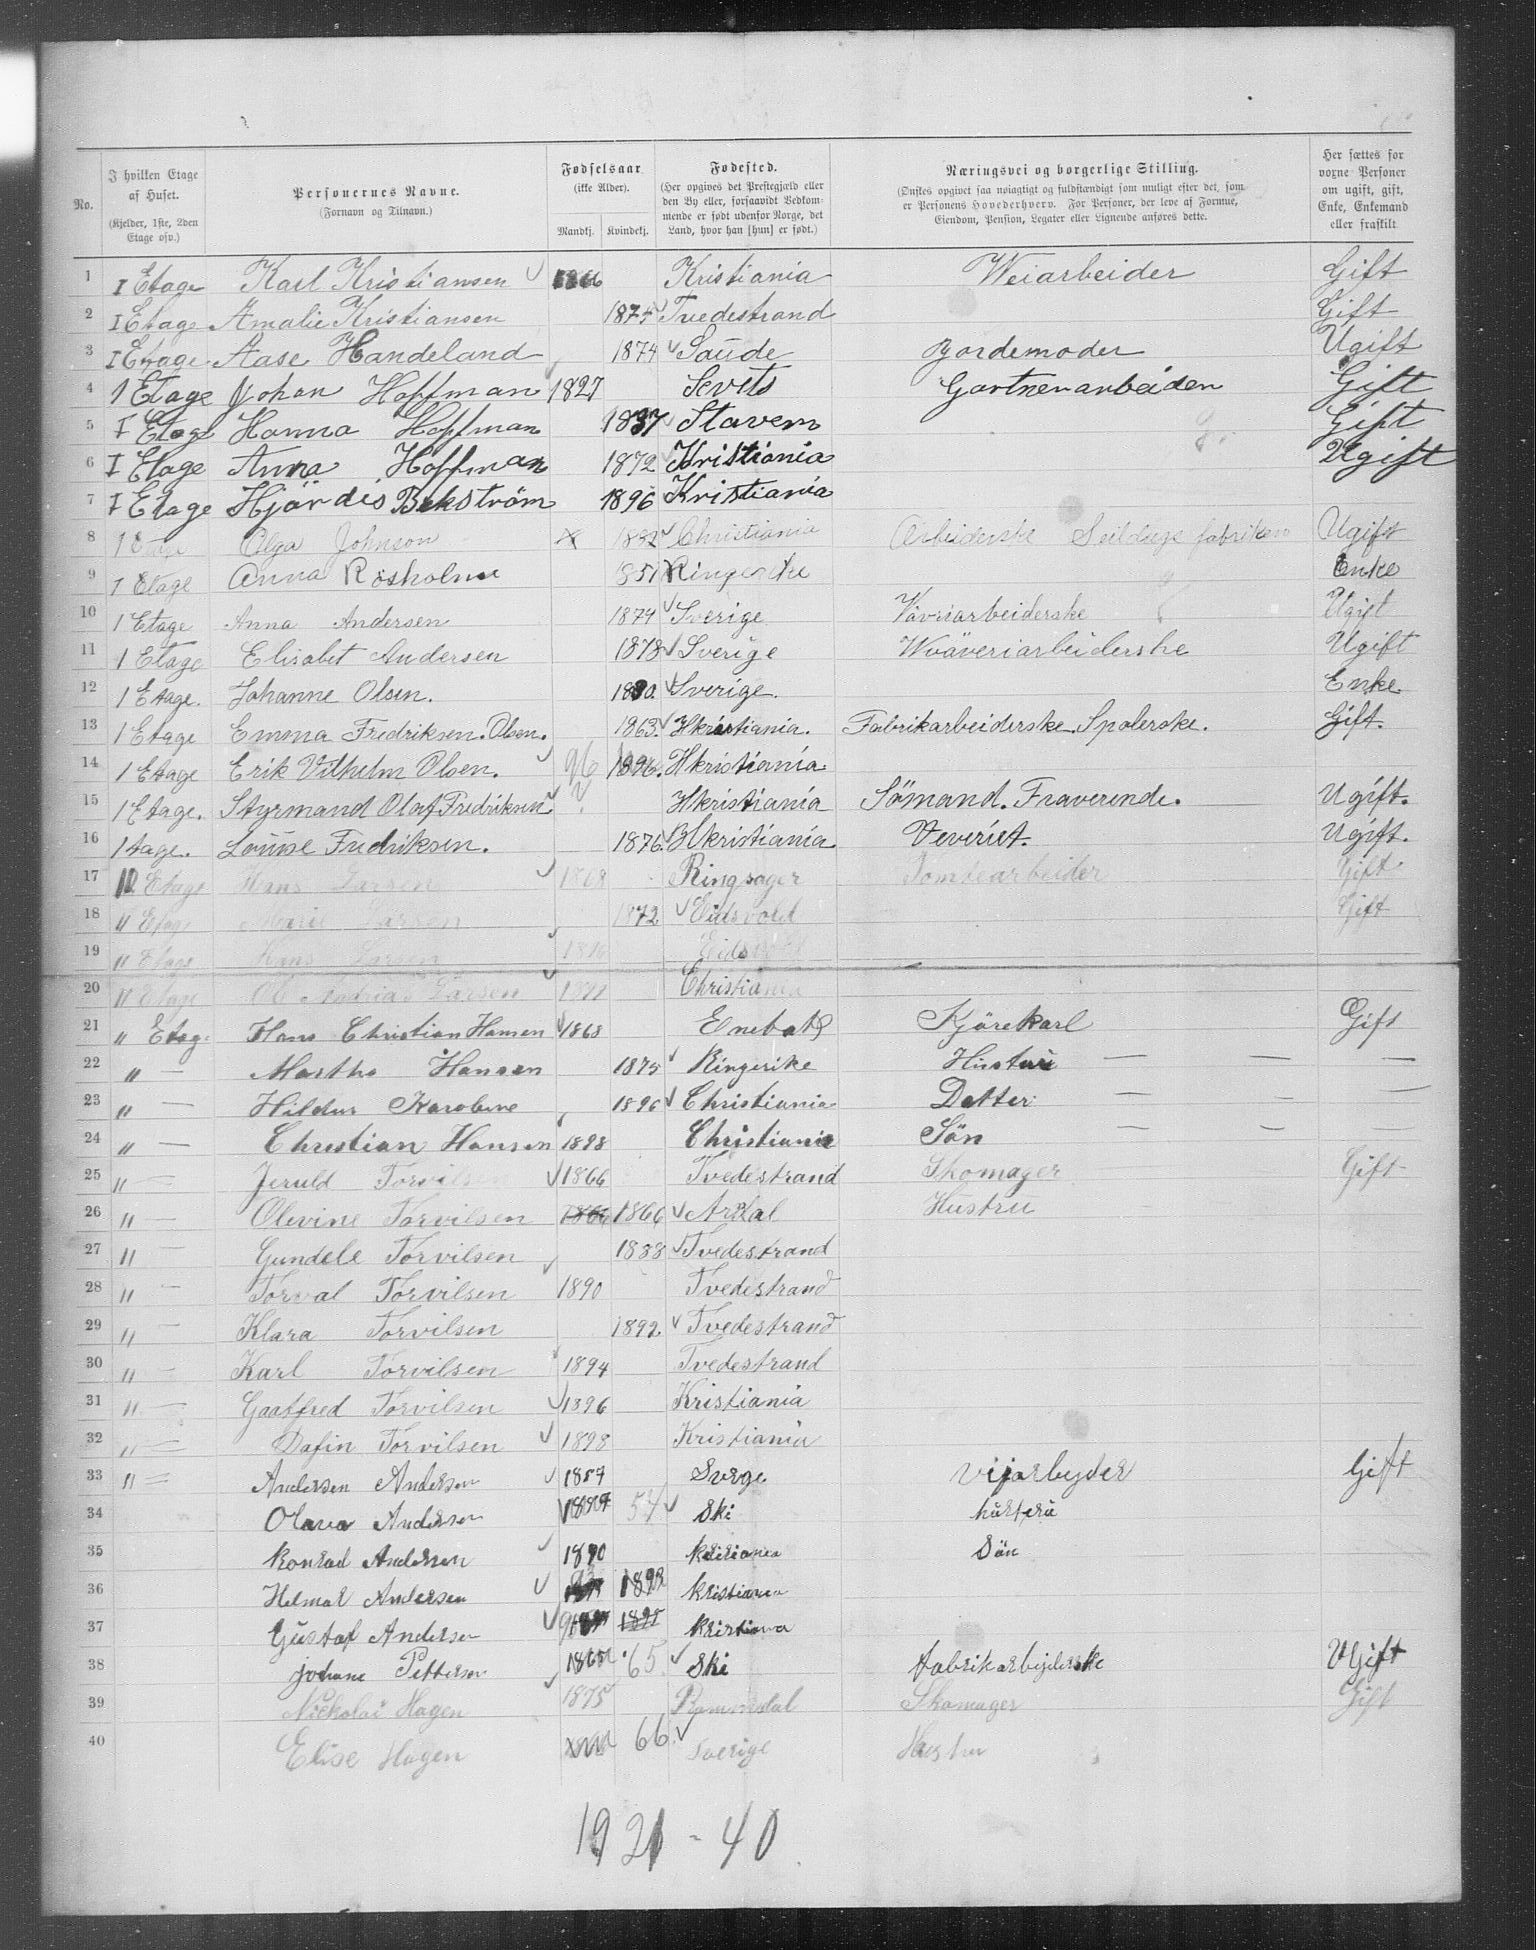 No.
I hvilken Etage af Huset. (Kjelder, 1ste, 2den Etage osv.)
Personernes Navne. (Fornavn og Tilnavn.)
Fødselsaar (ikke Alder). Mandkj. Kvindekj.
Fødested. (Her opgives det Prestegjæld eller den By eller, forsaavidt Bedkommende er født udenfor Norge, det Land, hvor han [hun] er født.)
Næringsvei og borgerlige Stilling. (Ønskes opgivet saa nøiagtigt og fuldstændigt som muligt efter det, som er Personens Hovederhverv. For Personer, der leve af Formue, Eiendom, Pension, Legater eller Lignende anføres dette.
Her sættes for voxne Personer om ugift, gift, Enke, Enkemand eller fraskilt
1 I Etage Karl Kristiansen 1866 Kristiania Weiarbeider Gift
2 I Etage Amalie Kristiansen 1875 Tvedestrand Gift
3 I Etage Aase Handeland 1874 Saude Jordemoder Ugift
4 1 Etage Johan Hoffman 1827 Sevets Gartnerarbeider Gift
5 I Etage Hanna Hoffman 1837 Stavern Gift
6 I Etage Anna Hoffman 1872 Kristiania Ugift
7 I Etage Hjördis Bekström 1896 Kristiania
8 1 Etage Olga Johnson 1882 Christiania Arbeiderske Seildugsfabriken Ugift
9 1 Etage Anna Rösholm 1851 Ringerike Enke
10 1 Etage Anna Andersen 1874 Sverige Vävriarbeiderske Ugift
11 1 Etage Elisabet Andersen 1878 Sverige Wväveriarbeiderske Ugift
12 1 Etage. Johanne Olsen. 1830. Sverige. Enke
13 1 Etage Emma Fredriksen. Olsen. 1863. Hkristiania. Fabrikarbeiderske. Spolerske. Gift.
14 1 Etage Erik Vilhelm Olsen. 96 1896. Hkristiania
15 1 Etage. Styrmand Olaf Fredriksen ? Hkristiania Sömand. Fraverende. Ugift.
16 1 tage. Louise Fredriksen. 1876. Hkristiania Veveriet. Ugift.
17 II Etage Hans Larsen 1868 Ringsager Tomtearbeider Gift
18 " Etage Marie Larsen 1872 Eidsvold Gift
19 " Etage Hans Larsen Eidsvold
20 " Etage Larsen Christiania
21 " Etag. Hans Christian Hansen 1868 Enebak Kjörekarl Gift
22 " — Martha Hansen 1875 Ringerike Hustru — — —
23 " — Hildur Karoline 1896 Christiania Datter — — —
24 " — Christian Hansen 1898 Christiania Sön — — —
25 " — Jeruld Torvilsen 1866 Tvedestrand Skomager Gift
26 " — Olevine Torvilsen 1866 1866 Ardal Hustru
27 " — Gundele Torvilsen 1888 Tvedestrand
28 " — Torval Torvilsen 1890 Tvedestrand
29 " — Klara Torvilsen 1892 Tvedestrand
30 " — Karl Torvilsen 1894 Tvedestrand
31 " — Gaatfred Torvilsen 1896 Kristiania
32 " — Dafin Torvilsen 1898 Kristiania
33 " — Andersen Andersen 1857 Sverge Vijarbyder Gift
34 Olava Andersen 54 Ski hustru
35 Konrad Andersen 1890 Sön
36 Helmar Andersen 1892 kristiania
37 Gustaf Andersen 1895 kristiana
38 johane Pettersen 1865 65. Ski fabrikarbyderske Ugift
39 Nickolai Hagen 1875 Romsdal Skomager Gift
40 Elise Hagen 66 Sverige Hustru
1921 - 40